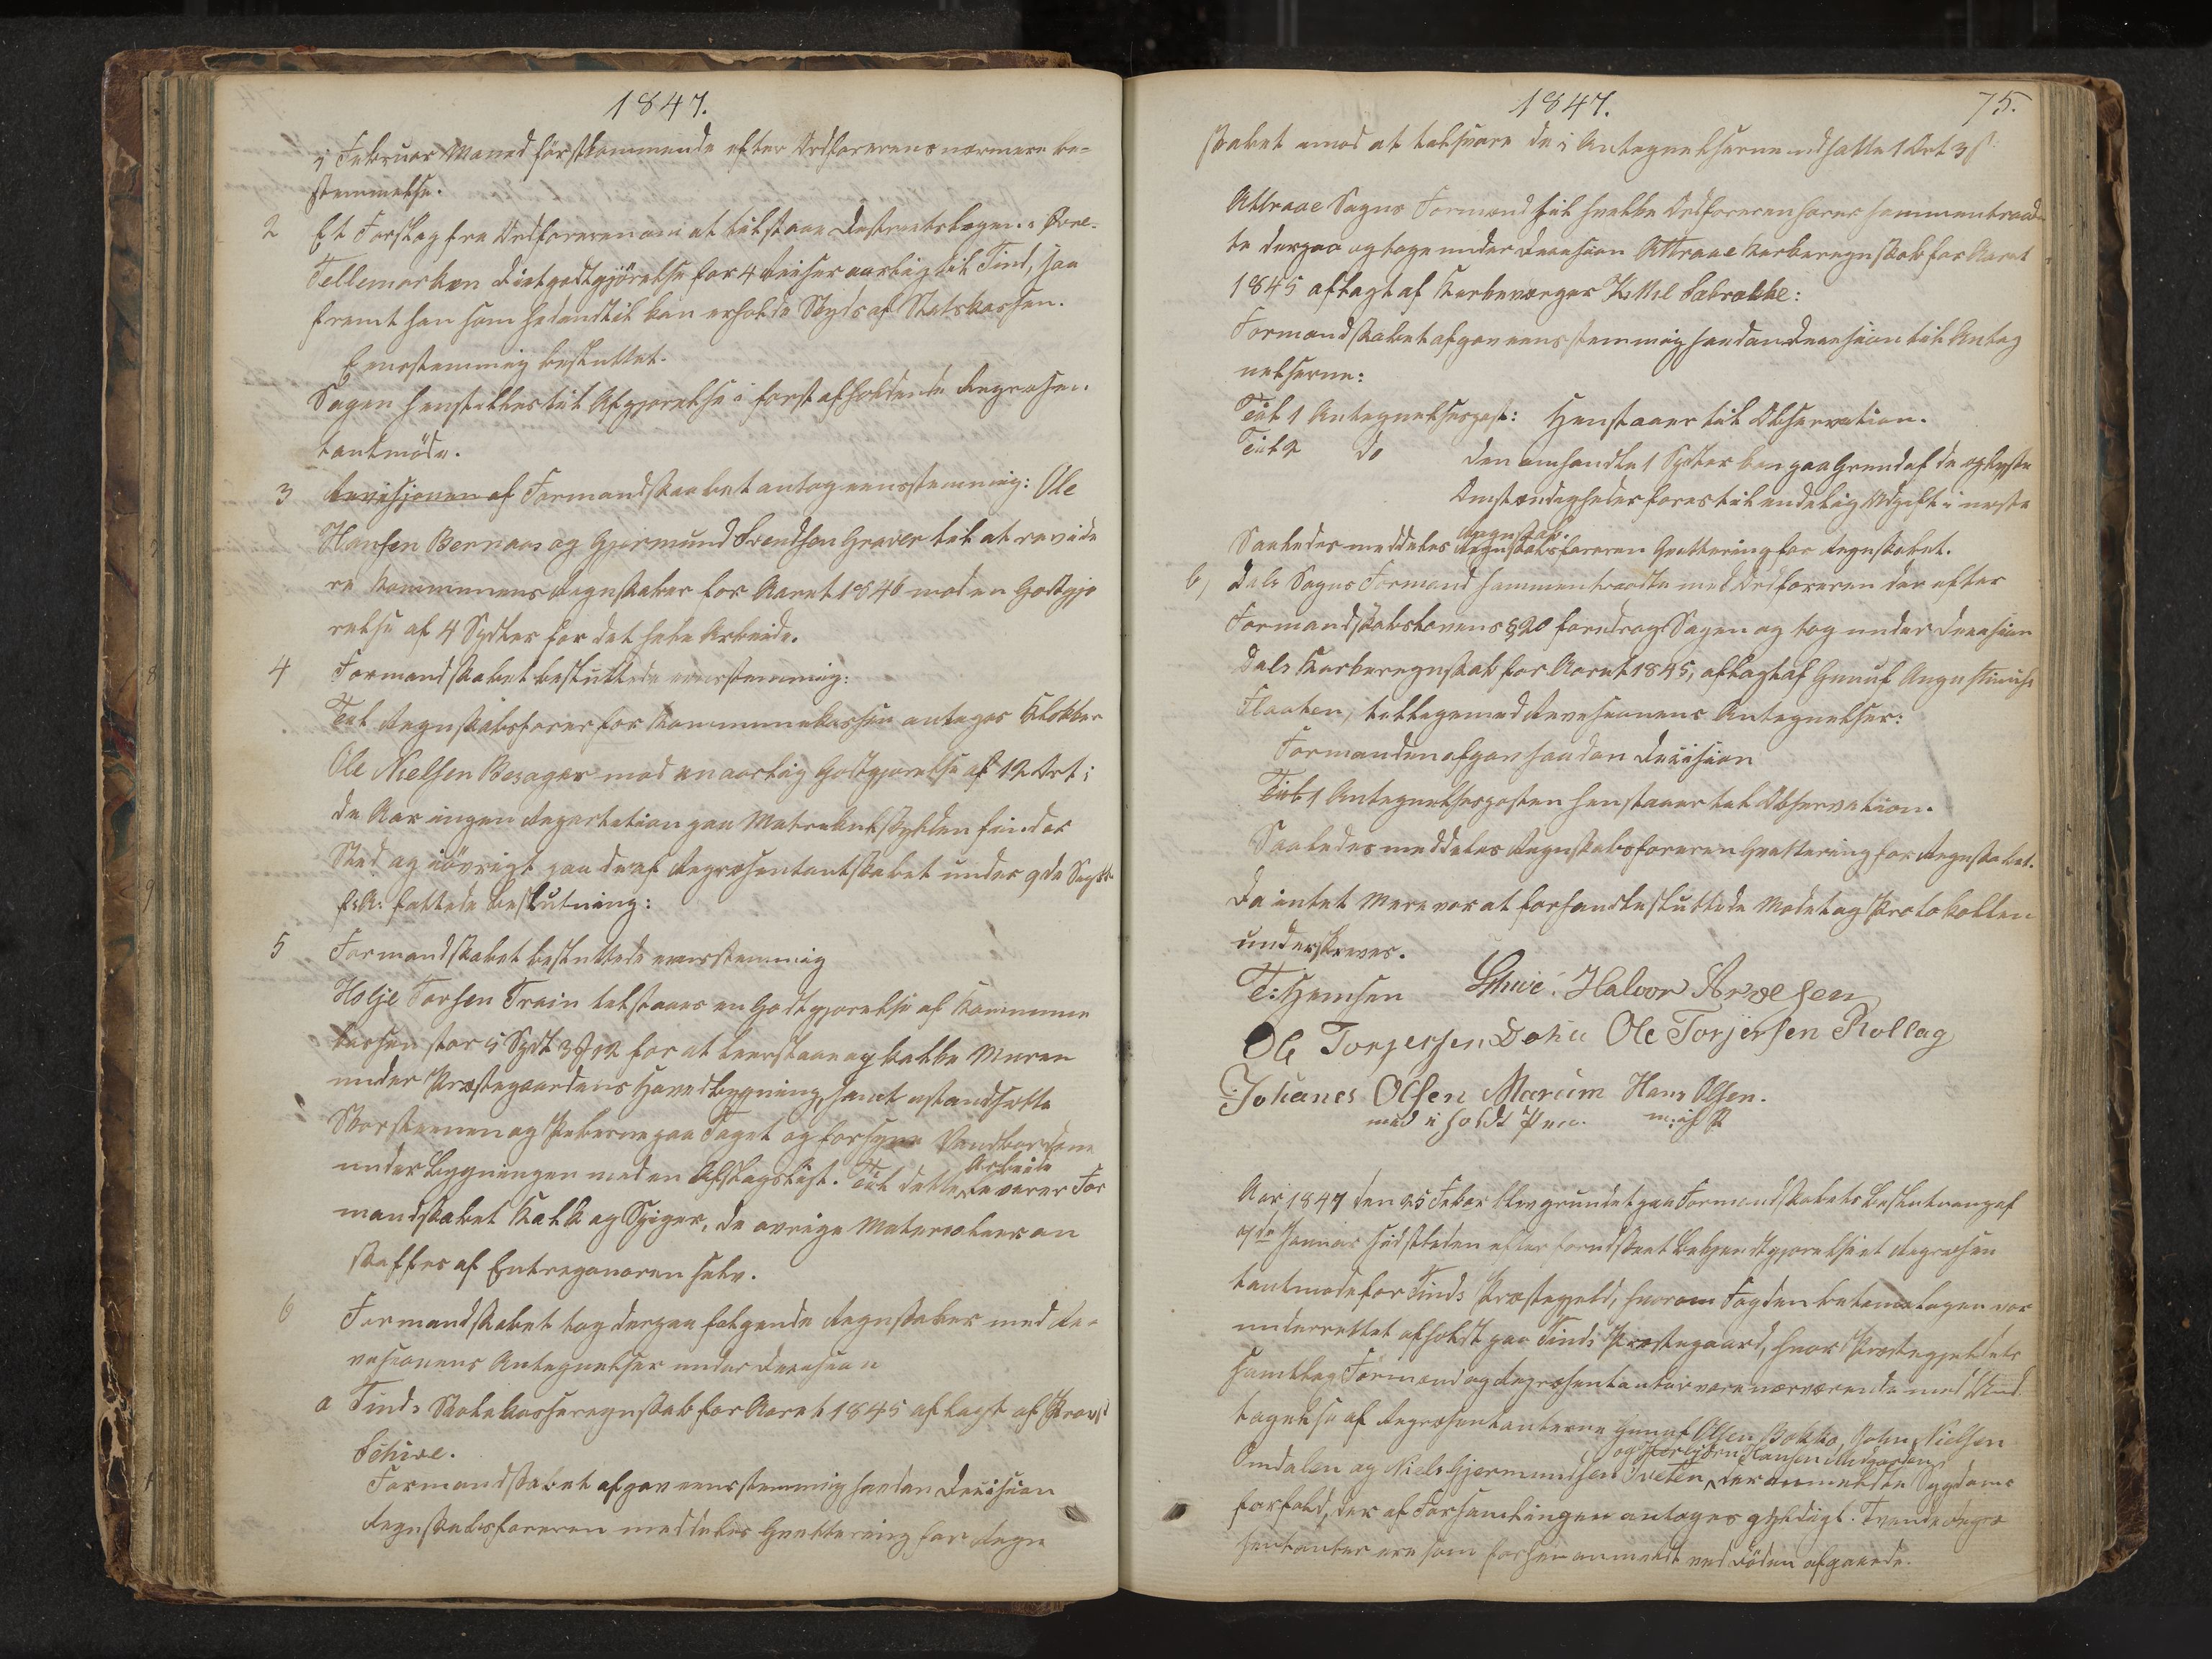 1847.
i Februar Maaned førstkommende efter Ordførerens nærmere be-
stemmelse.
2 Et Forslag fra Ordføreren om at tilstaae Districtslægen i Øvre-
Tellemarken Dietgodtgjørelse for 4 Reiser aarlig til Tind, saa
fremt han som hidindtil kan erholde Skyds af Statskassen.
Eenstemmig besluttet.
Sagen henstilles til Afgjørelse i først afholdende Repræsen-
tantmöde.
3 Revisjonen af Formandskabet antog eensstemmig: Ole
Hansen Bernaas og Gjermund Svendsen Graver til at revide
re Kommunens Regnskaber for Aaret 1846 mod en Godtgjø
relse af 4 Spdler for det hele Arbeide.
4 Formandskabet besluttede eensstemmig:
Til Regnskabsfører for Kommunekassen antages Klokker
Ole Nielsen Besager mod en aarlig Godtgjørelse af 12 Ort i
de Aar ingen Repartition paa Matrikulskylden finder
Sted og iövrigt paa de af Repræsentantskabet under 9de Septbr
f: A: fattede Beslutning:
5 Formandskabet besluttede eensstemmig
Holje Torsen Traen tilstaaes en Godtgjørelse af Kommune
kassen stor 5 Spdl 3 12 for at understaae og kalke Muren
under Præstegaardens Hovedbygning, samt istandsætte
Skorsteenen og Piberne paa Taget og forsyne Vandbordene
under Bygningen med en Afslagslist. Til dette Arbeide leverer For
mandskabet Kalk og Spiger, de øvrige Materialier an
skaffes af Entreprenøren selv.
6 Formandskabet tog derpaa følgende Regnskaber med Re-
visionens Antegnelser under Decision
a Tinds Skolekasseregnskab for Aaret 1845 aflagt af Provst
Schive.
Formandskabet afgav eensstemmig saadan Decision
Regnskabsføreren meddeles Qvittering for Regn
1847. 75.
skabet imod at tilsvare de i Antegnelserne udsatte 1 Ort 3 ß
Attraae Sogns Formænd til hvilke Ordføreren hører sammentraad-
te derpaa og toge under Decision Attraae Kirkeregnskab for Aaret
1845 aflagt af Kirkeværger Kittil Sabrække:
Formandskabet afgav eensstemmig saadan Decision til Anteg
nelserne:
Til 1 Antegnelsespost: Henstaaer til Observation.
Til 2 do Den omhandlede 1 Spdler kan paa Grund af de oplyste
Omstændigheder føres til endelig Udgift i næste
Regnskab.
Saaledes meddeles Regnskabsføreren Qvittering for Regnskabet.
b, Dals Sogns Formænd sammentraadte med Ordføreren der efter
Formandskabslovens § 20 foredrog Sagen og tog under Decision
Dals Kirkeregnskab for Aaret 1845, aflagt af Gunuf
Flaaten, tilligemed Revisionens Antegnelser:
Formanden afgav saadan Decision
Til 1 Antegnelsesposten henstaaer til Observation.
Saaledes meddeles Regnskabsføreren Qvittering for Regnskabet.
Da intet Mere var at forhandle sluttede Mødet og Protokollen
underskreves.
T: Hemsen Schive. Halvor Arvesen
Ole Torjersen Dahle Ole Torjersen Rollag
Johanes Olsen Marum Hans Olsen.
med i holdt Pen. m: i: h: P
Aar 1847 den 25 Febar blev grundet paa Formandskabets Beslutning af
7de Januar sidstleden efter forudskeet Bekjendtgjørelse et Repræsen
tantmøde for Tinds Præstegjeld, hvorom Fogden betimeligen var
underrettet afholdt paa Tinds Præstegaard, hvor Præstegjeldets
samtlige Formænd og Repræsentanter vare nærværende med Und
tagelse af Repræsentanterne Gunuf Olsen Bakko, John Nielsen
og Thorbjörn Hansen Midgarden
Omdalen og Niels Gjermundsen Tveten, der anmeldte Sygdoms
forfald, der af Forsamlingen antoges gyldigt. Tvende Repræ
sentanter ere som forhen anmeldt ved Döden afgaaede.